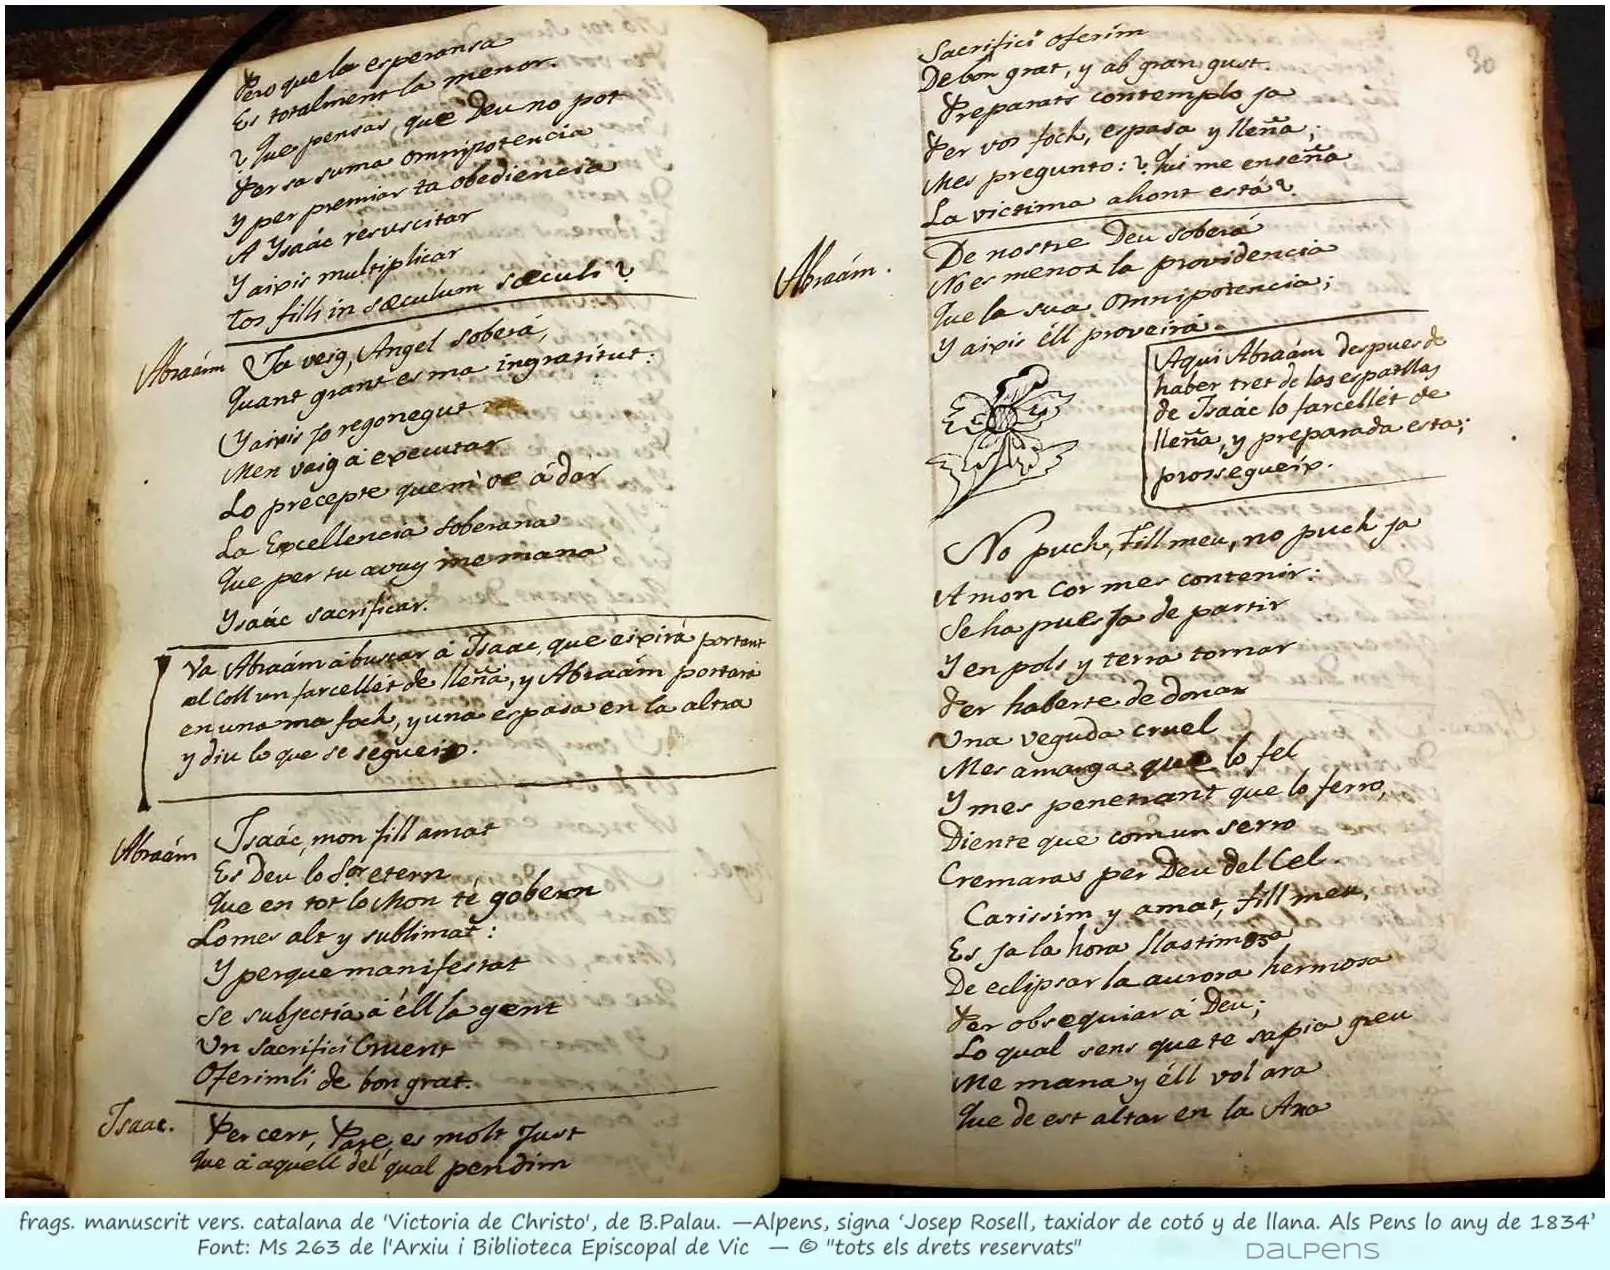 Pero que la esperansa
Es totalment la menor.
? Que pensas, que Deu no pot
Per sa suma omnipotencia
Y per premiar ta obediencia
A Ysaác resuscitar
Y aixis multiplicar
Tos fills in sæculum sæculi?
Abraám
Ja veig, Angel soberá,
Quant grant es ma ingratitut:
Y aixis jo regonegut
Men vaig á executar
Lo precepte quem ve á dar
La Excellencia soberana
Que per tu avuy me mana
Ysaác sacrificar.
Va Abraám á buscar á Isaac, que eixirá portant
al coll un farcellét de lleña, y Abraám portará
en una ma foch, y una espasa en la altra
y diu lo que se segueix.
Abraám
Isaác, mon fill amat
Es Deu lo S.or etern
Que en tot lo Mon té gobern
Lo mes alt y sublimat:
Y perque manifestat
Se subjectia á éll la gent
Un sacrifici Cruent
Oferimli de bon grat.
Isaac.
Per cert, Pare, es molt Just
Que á aquell del qual pendim
30
Sacrifici oferim
De bon grat, y ab gran gust.
Preparats contemplo ja
Per vos foch, espasa y lleña;
Mes pregunto: ? Qui me enseña
La victima ahont está?
Abraám.
De nostre Deu soberá
No es menor la providencia
Que la sua omnipotencia;
Y aixis éll proveirá.
Aqui Abraám despues de
haber tret de las espatllas
de Isaác lo farcellét de
lleña, y preparada esta;
prossegueix.
No puch, fill meu, no puch ja
A mon cor mes contenir:
Se ha pues Ja de partir
Y en pols y terra tornar
Per haberte de donar
Una veguda cruel
Mes amarga que lo fel
Y mes penetrant que lo ferro,
Diente que com un serro
Cremaras per Deu del Cel.
Carissim y amat, fill meu,
Es ja la hora llastimosa
De eclipsar la aurora hermosa
Per obsequiar á Deu;
Lo qual sens que te sapia greu
Me mana y éll vol ara
Que de est altar en la Ara
frags. manuscrit vers. catalana de 'Victoria de Christo', de B.Palau. —Alpens, signa ‘Josep Rosell, taxidor de cotó y de llana. Als Pens lo any de 1834’
Font: Ms 263 de l'Arxiu i Biblioteca Episcopal de Vic — © "tots els drets reservats"
DALPENS